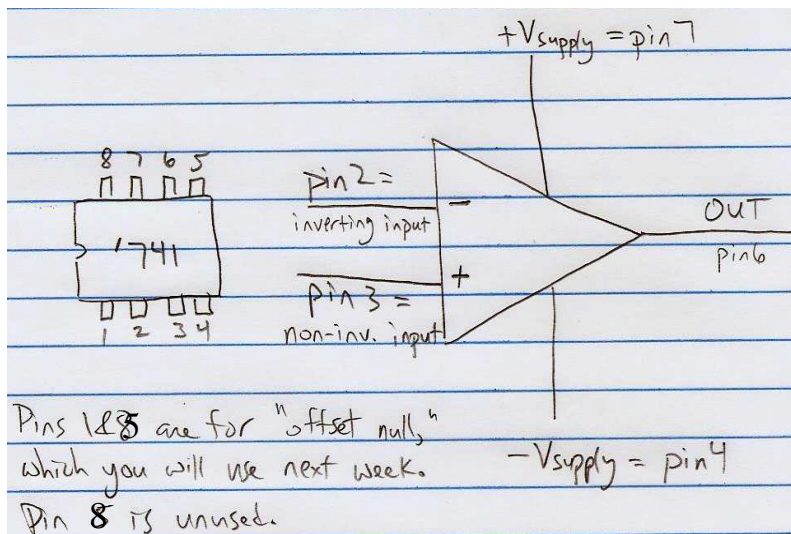 +Vsupply = pin 7
8 7 6 5
'741
1 2 3 4
pin 2 =
inverting input
-
+
pin 3 =
non-inv. input
OUT
pin 6
-Vsupply = pin 4
Pins 1&5 are for "offset null,"
which you will use next week.
Pin 8 is unused.